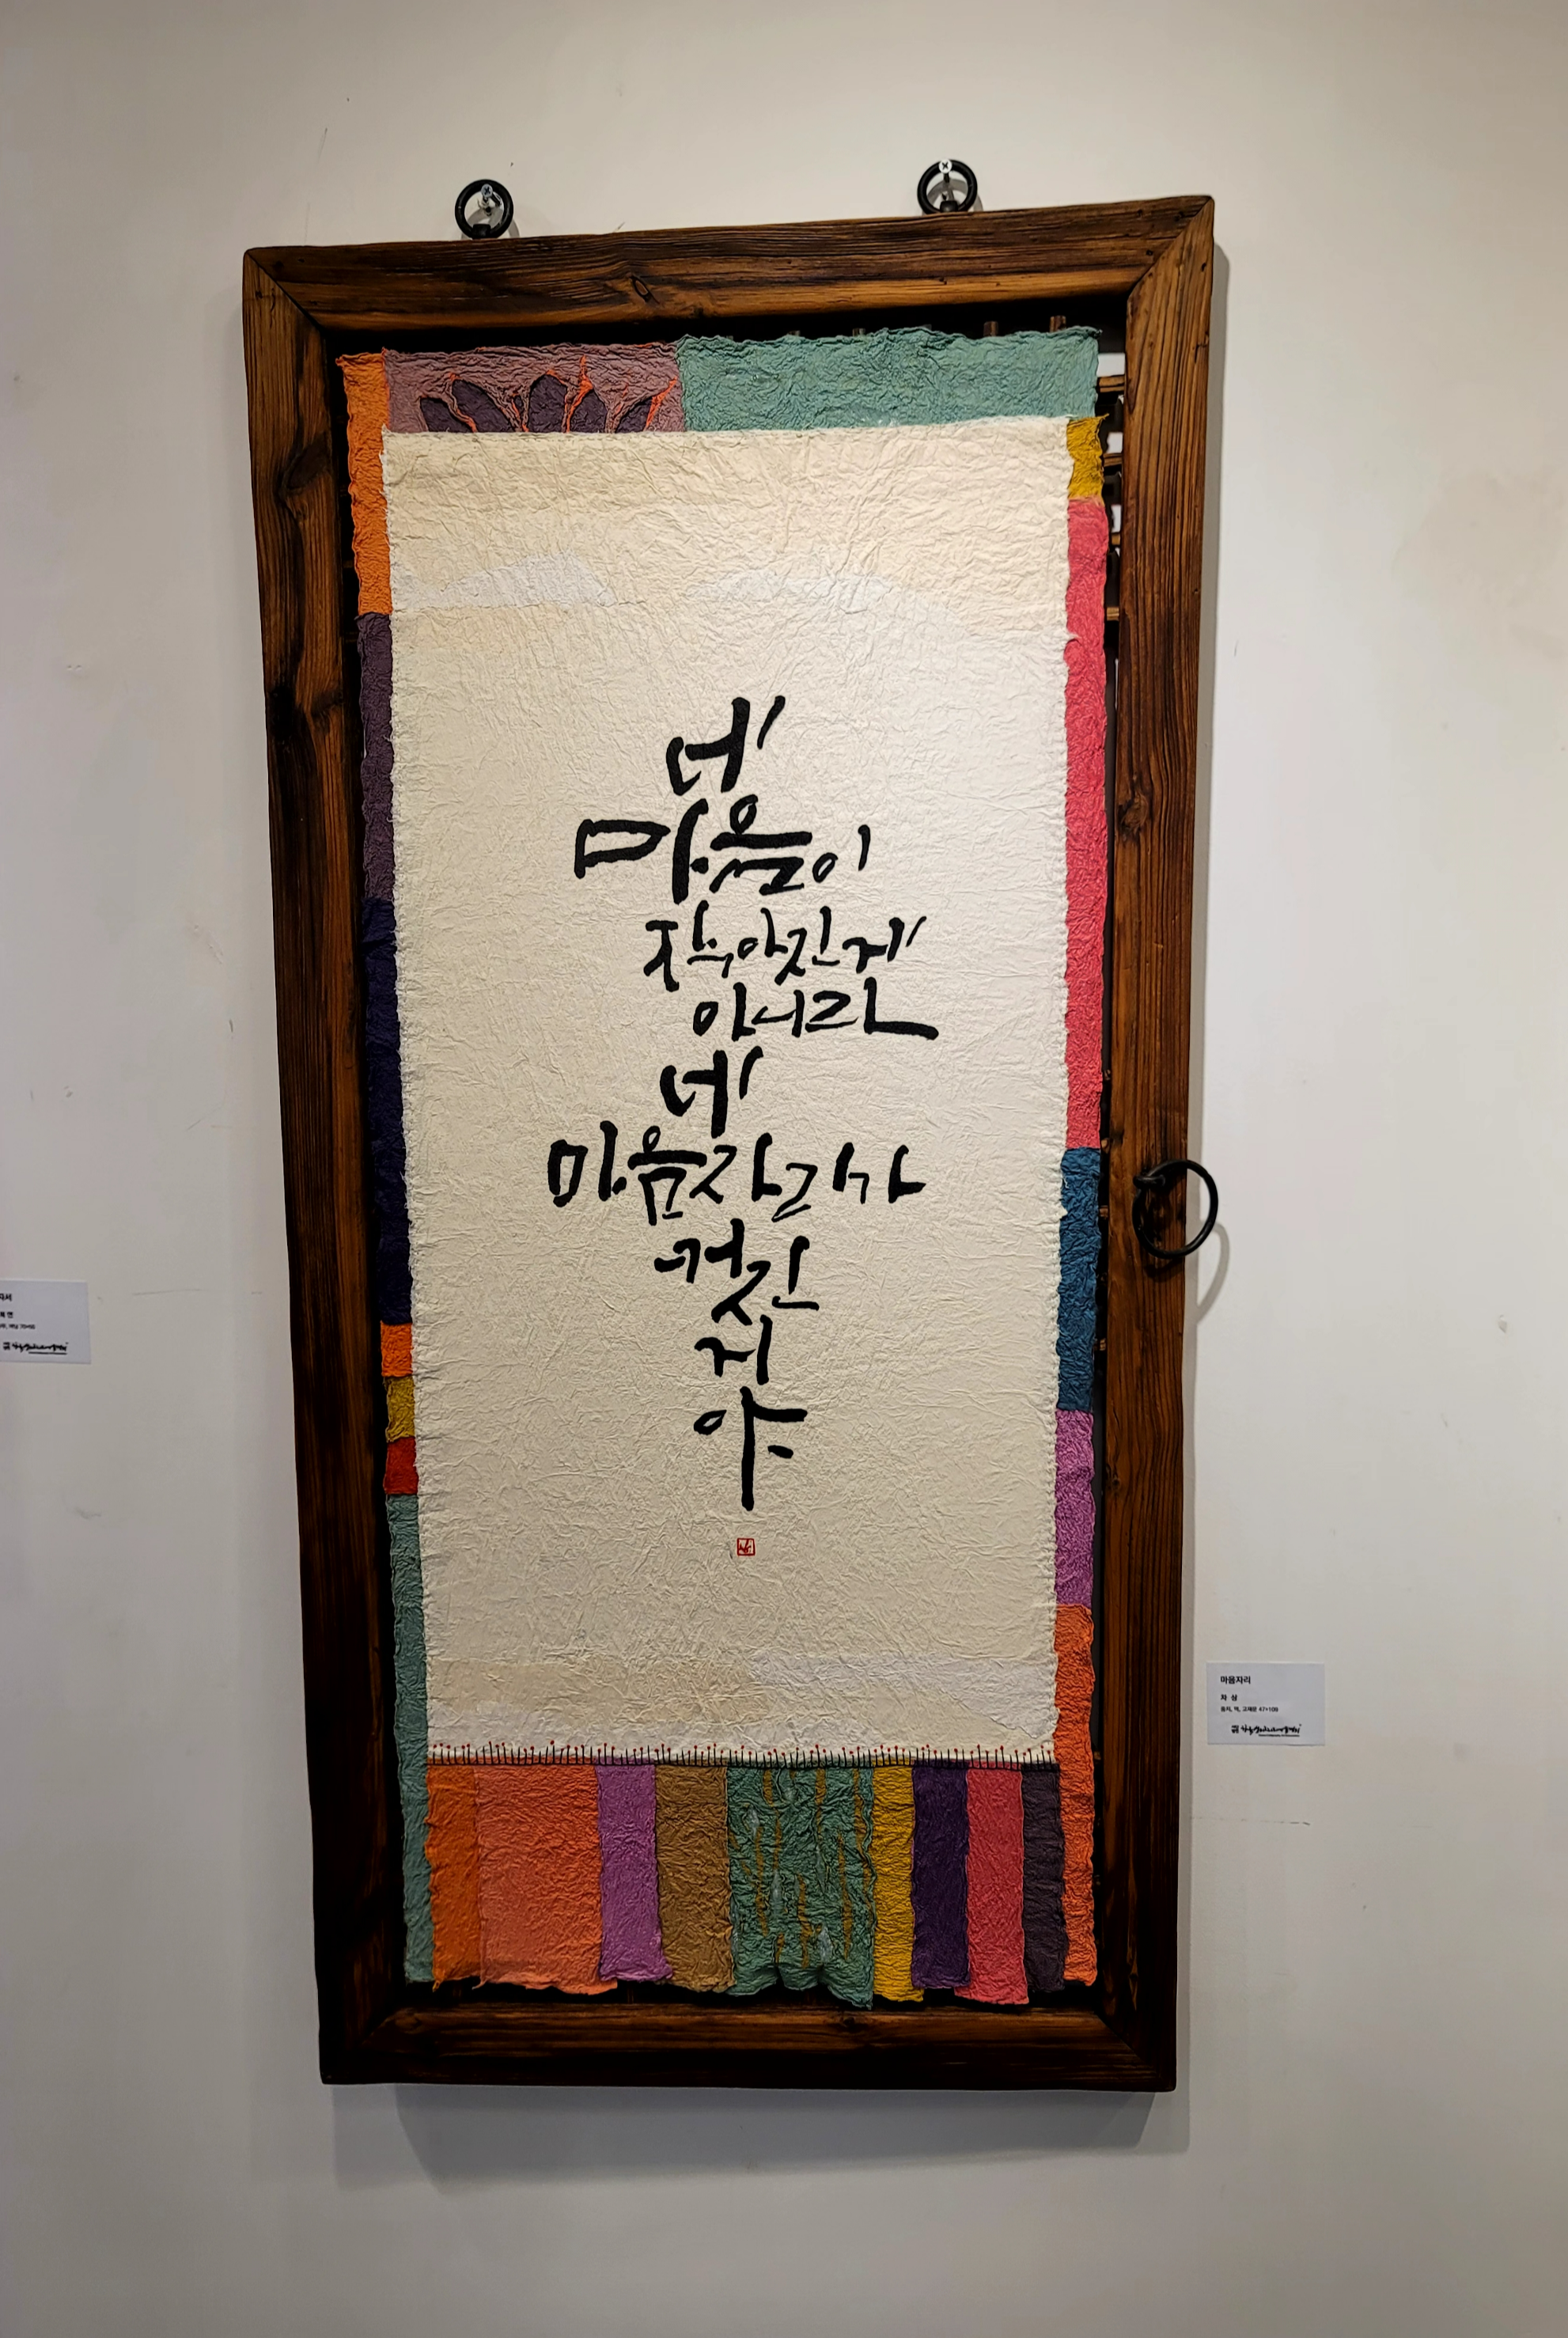 네
마음이
작아진게
아니라
네
마음자리가
커진
거
야
마음자리
먹, 고재문 47*109